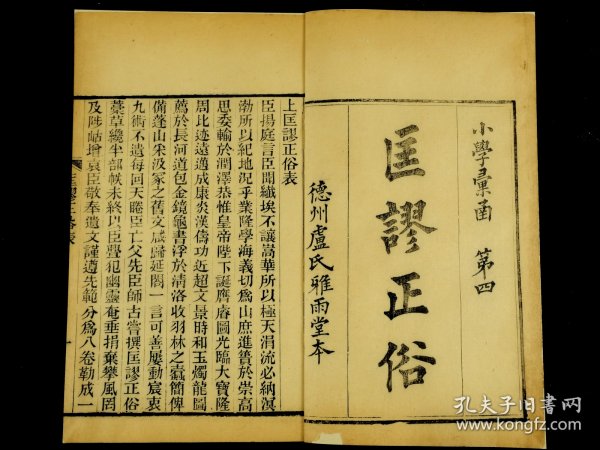 小學彙函　第四
匡謬正俗
德州盧氏雅雨堂本
上匡謬正俗表
臣揚庭言臣聞纎埃不讓嵩華所以極天涓流必納溟
渤所以紀地況乎業隆學海義切爲山庶進簣於崇高
思委輸於潤澤恭惟皇帝陛下誕膺睿圖光臨大寶隆
周比迹遠邁成康炎漢儔功近超文景時和玉燭龍圖
薦於長河道包金鏡龜書浮於清洛收羽林之蠹簡俾
備蓬山采汲冢之舊文咸歸延閣一言可善屢動宸衷
九術不遺每回天睠臣亡父先臣師古嘗撰匡謬正俗
藁草纔半部帙未終以臣舋犯幽靈奄垂捐棄攀風罔
及陟岵增哀臣敬奉遺文謹遵先範分爲八卷勒成一
一
孔夫子旧书网
www.kongfz.com